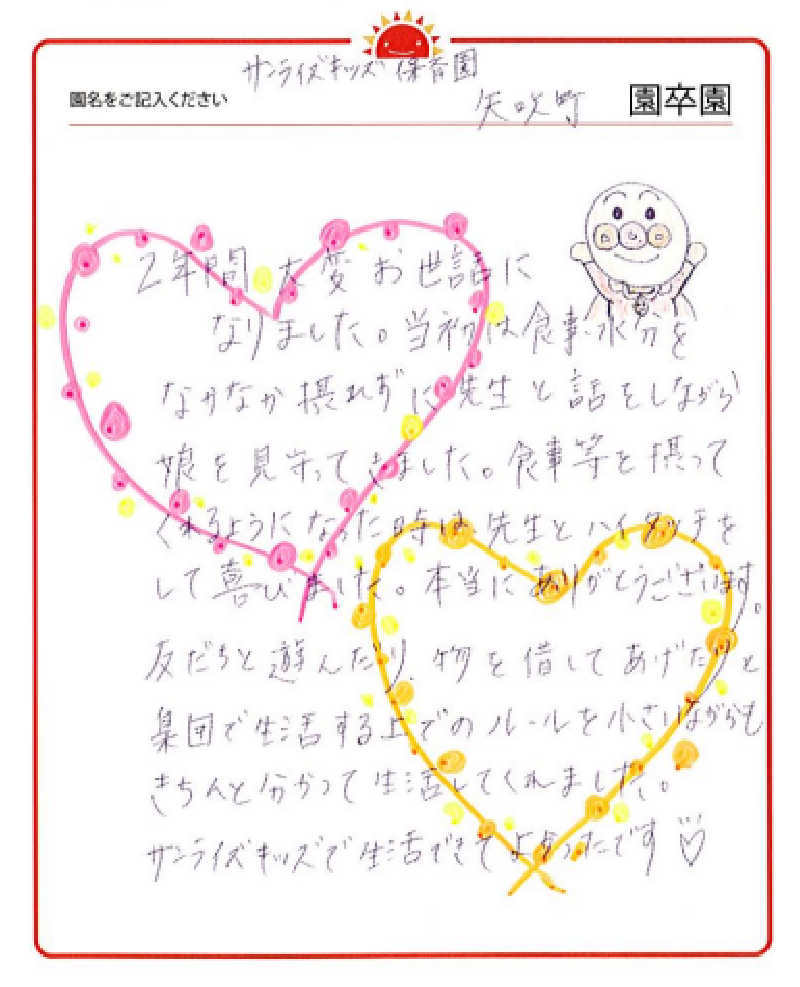 サンライズキッズ保育園
園名をご記入ください 矢吹町 園卒園
2年間 大変お世話に
なりました。当初は食事、水分を
なかなか摂れずに先生と話をしながら
娘を見守ってきました。食事等を摂って
くれるようになった時は先生とハイタッチを
して喜びました。本当にありがとうございます。
友だちと遊んだり、物を借してあげたりと
集団で生活する上でのルールを小さいながらも
きちんと分かって生活してくれました。
サンライズキッズで生活できてよかったです♡